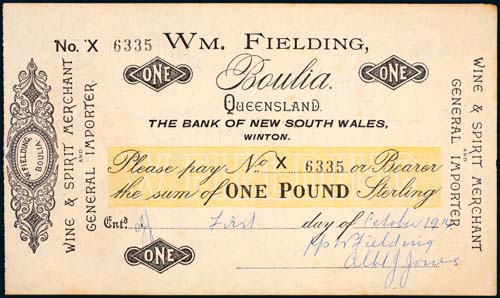 No. X 6335
WM. FIELDING,
ONE
ONE
Boulia.
QUEENSLAND.
THE BANK OF NEW SOUTH WALES,
WINTON.
WINE & SPIRIT MERCHANT
AND
GENERAL IMPORTER
W. FIELDING
BOULIA.
WINE & SPIRIT MERCHANT
AND
GENERAL IMPORTER
Please pay No X 6335 or Bearer
the sum of ONE POUND Sterling
Entd. First day of October 1914
ONE
pp W Fielding
Albt J Jones